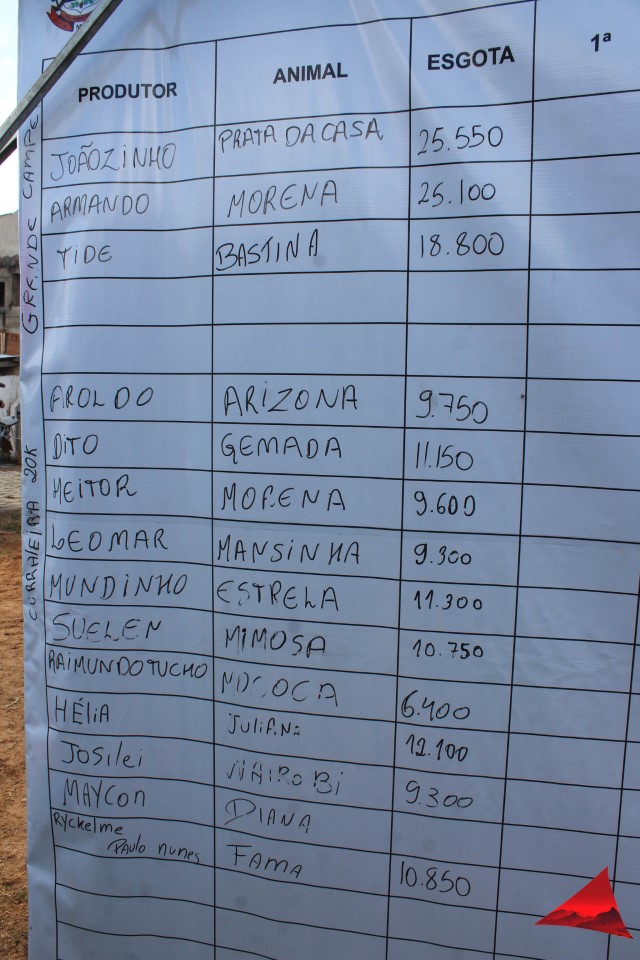 PRODUTOR ANIMAL ESGOTA 1ª
GRANDE CAMPE
JOÃOZINHO PRATA DA CASA 25.550
ARMANDO MORENA 25.100
TIDE BASTINA 18.800
CURRALEIRA 20K
AROLDO ARIZONA 9.750
DITO GEMADA 11.150
HEITOR MORENA 9.600
LEOMAR MANSINHA 9.300
MUNDINHO ESTRELA 11.300
SUELEN MIMOSA 10.750
RAIMUNDO TUCHO MOCOCA 6.400
HÉLIA JULIANA 12.100
JOSILEI NAIROBI 9.300
MAYCON DIANA
RYCKELME
PAULO NUNES FAMA 10.850